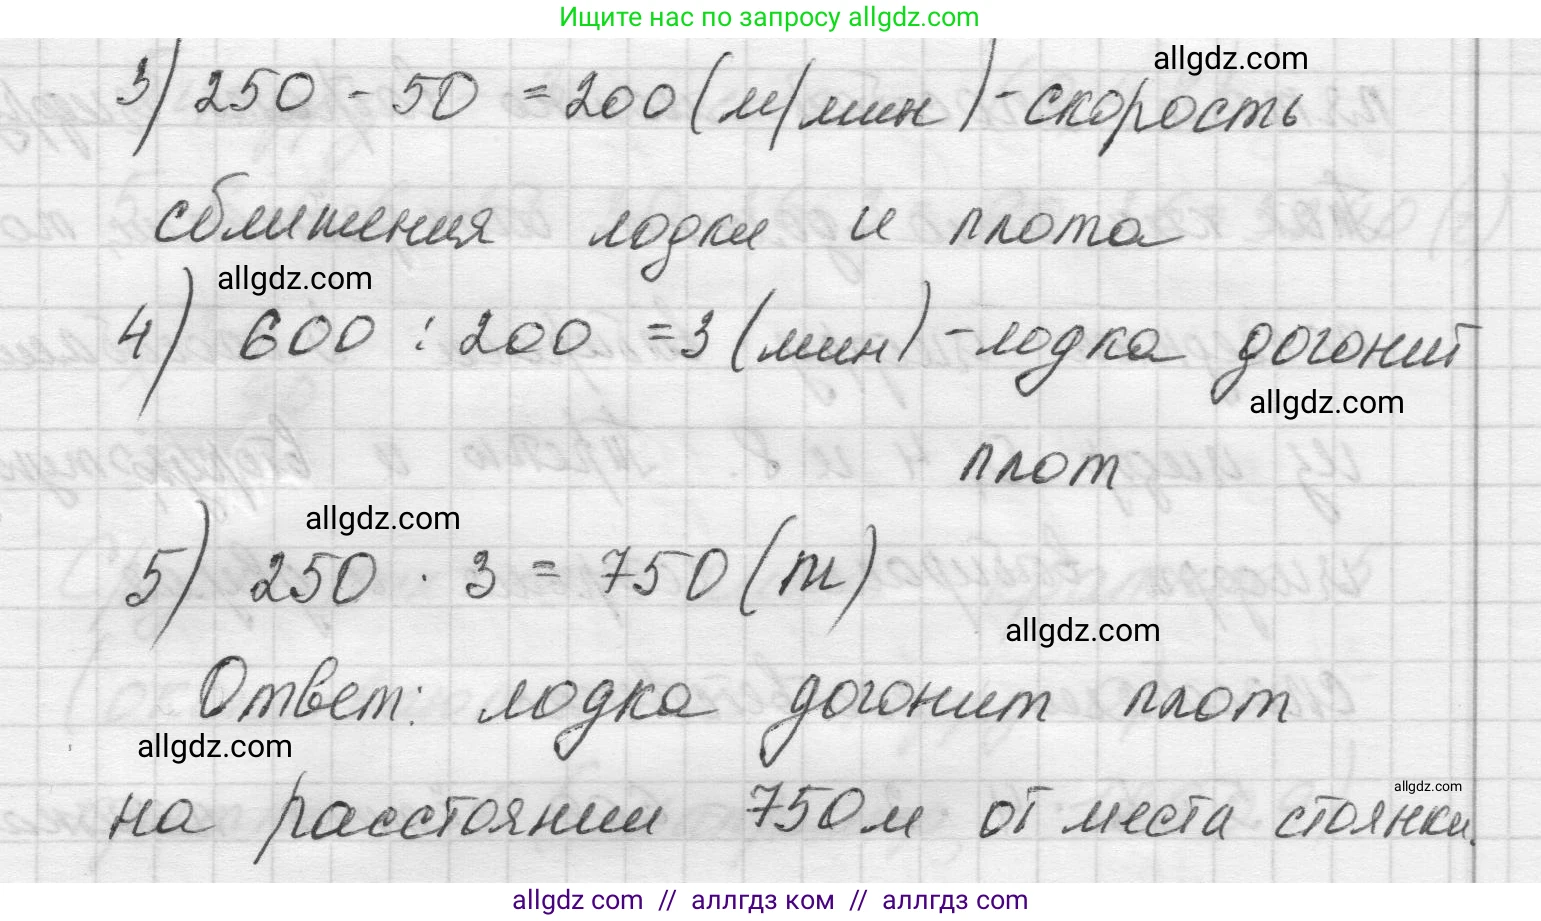 Ищите нас по запросу allgdz.com
allgdz.com
3) 250 - 50 = 200 (м/мин) - скорость
сближения лодки и плота
allgdz.com
4) 600 : 200 = 3 (мин) - лодка догонит
allgdz.com
плот
allgdz.com
5) 250 · 3 = 750 (м)
allgdz.com
Ответ: лодка догонит плот
allgdz.com
allgdz.com
на расстоянии 750 м от места стоянки.
allgdz com // аллгдз ком // аллгдз com